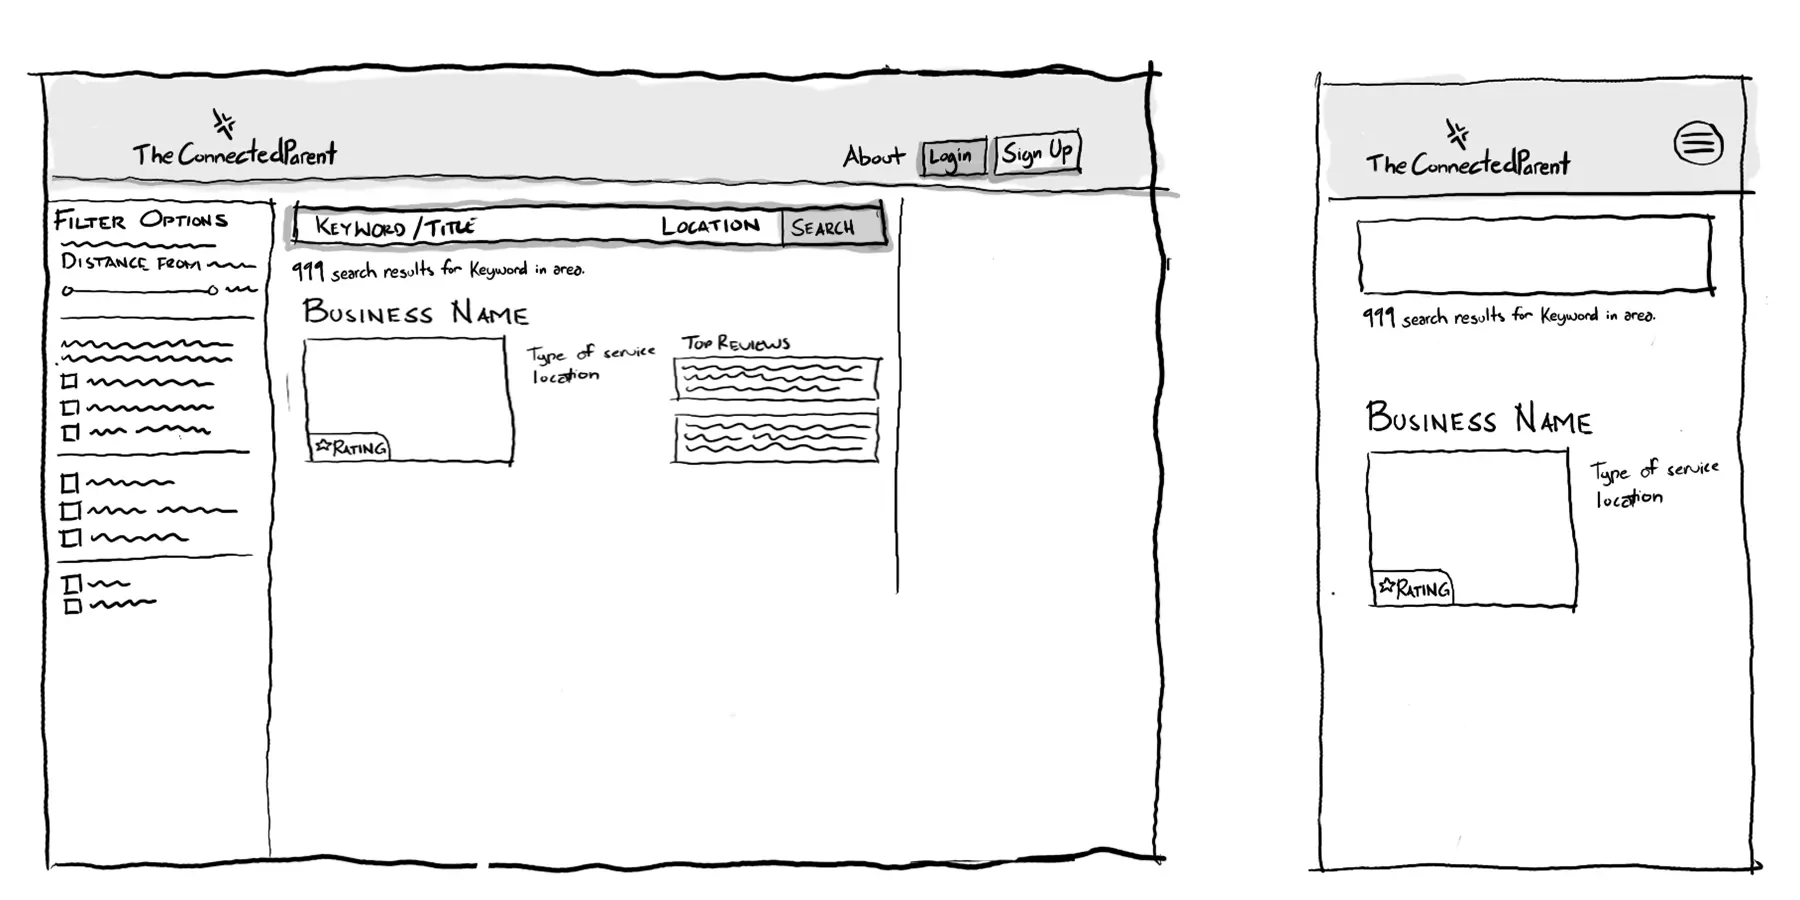 The ConnectedParent
About Login Sign Up
FILTER OPTIONS
DISTANCE FROM
KEYWORD / TITLE LOCATION SEARCH
999 search results for Keyword in area.
BUSINESS NAME
Type of service
location
☆RATING
TOP REVIEWS
The ConnectedParent
999 search results for Keyword in area.
BUSINESS NAME
Type of service
location
☆RATING